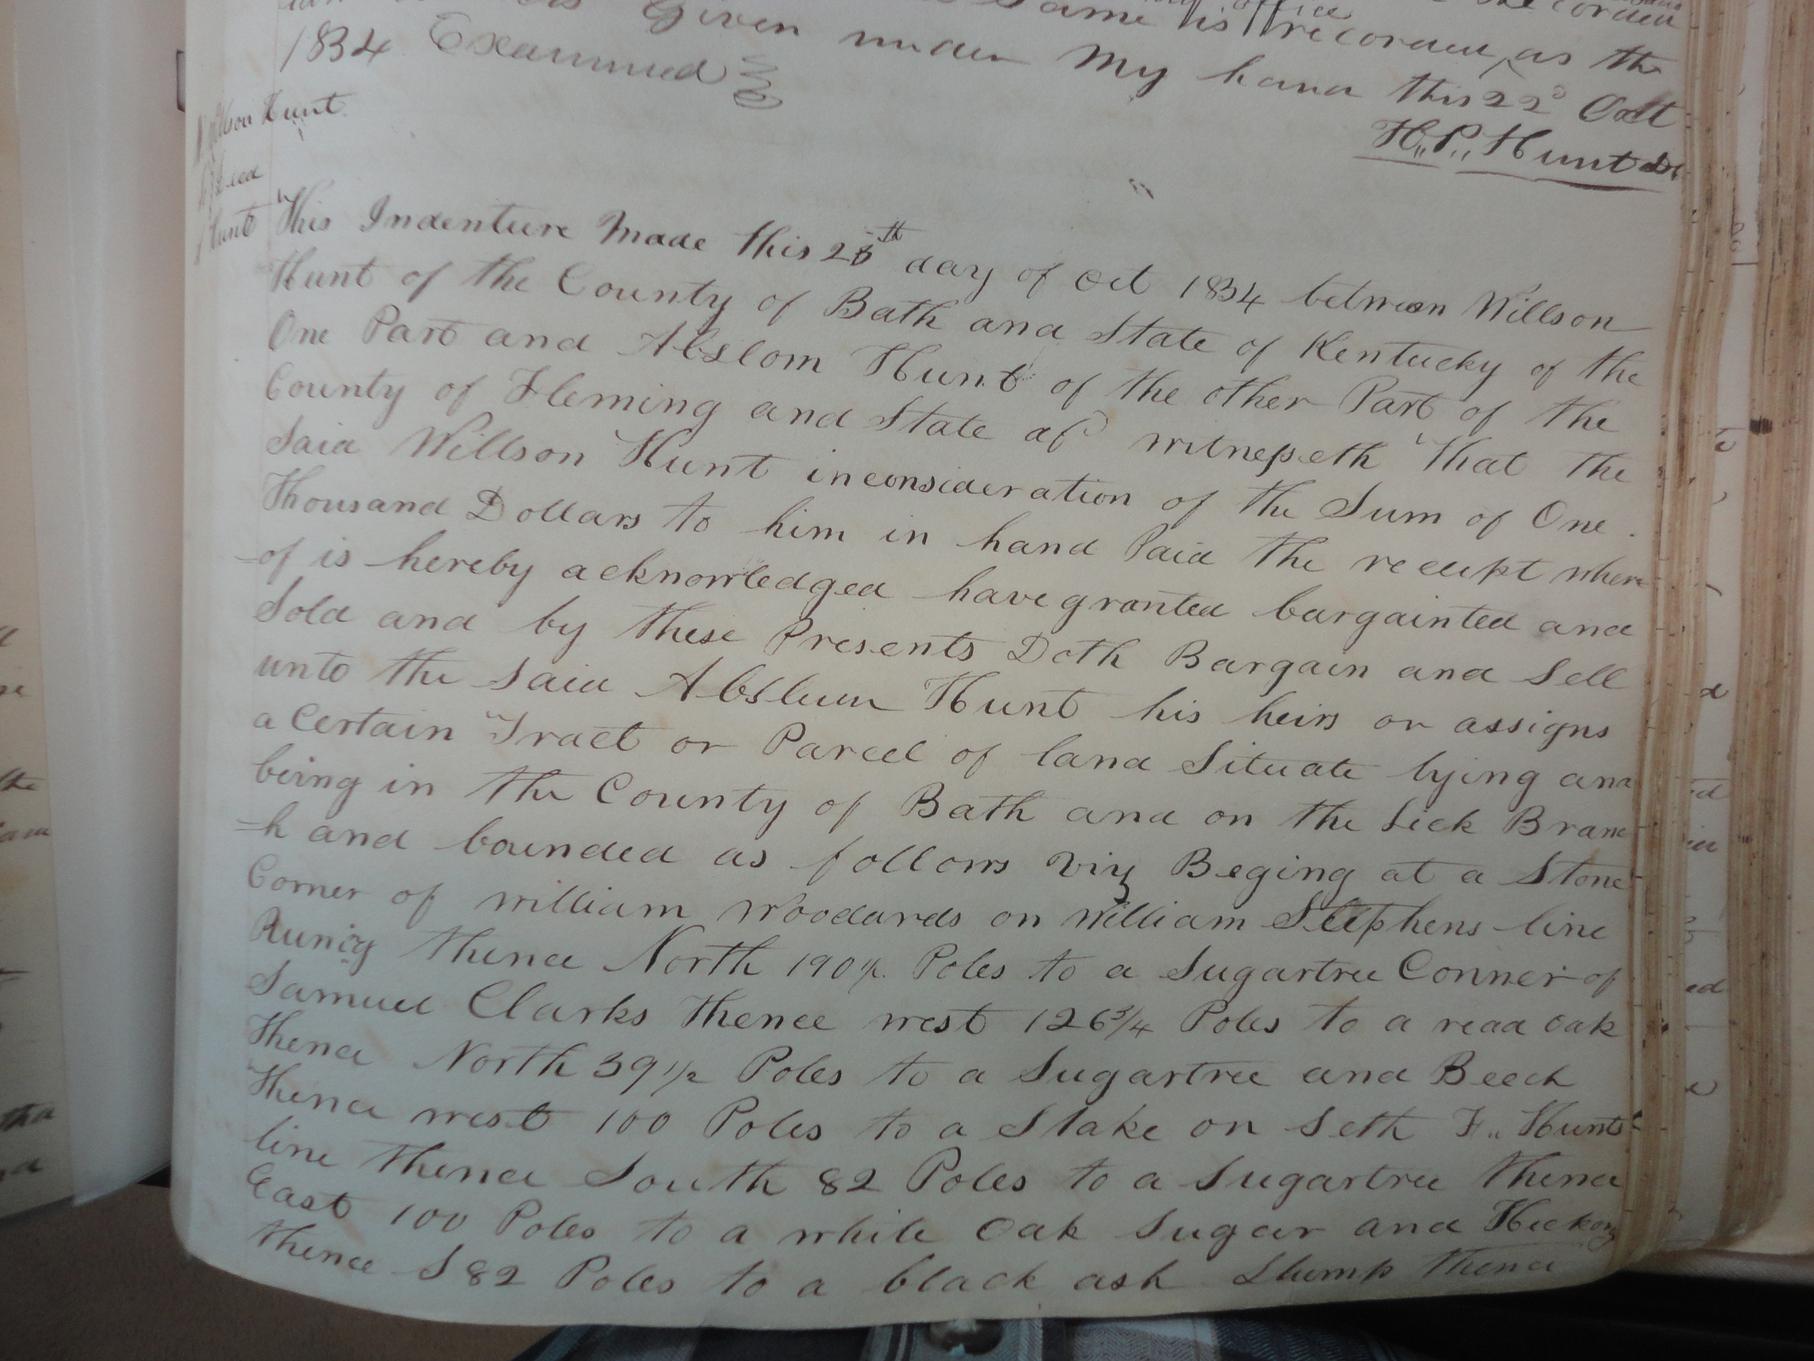 Given under my hand this 22d Oct
same is recorded, as the
office
1834 Examined
H,, P,, Hunt
Willson Hunt
Deed
Hunt
This Indenture Made this 25th day of Oct 1834 between Willson
Hunt of the County of Bath and State of Kentucky of the
One Part and Abslom Hunt of the other Part of the
County of Fleming and State af witnesseth That the
Said Willson Hunt inconsideration of the Sum of One
Thousand Dollars to him in hand Paid the receipt where
-of is hereby acknowledged have granted bargainted and
Sold and by these Presents Doth Bargain and Sell
unto the Said Abslum Hunt his heirs or assigns
a Certain Tract or Parcel of land Situate lying and
being in the County of Bath and on the Lick Branc
=h and bounded as follows viz Beging at a Stone
Corner of William Woodards on William Stephens line
Runig thence North 190½ Poles to a Sugartree Conner of
Samuel Clarks Thence west 126¾ Poles to a read oak
Thence North 39½ Poles to a Sugartree and Beech
Thence west 100 Poles to a Stake on Seth F,, Hunts
line thence South 82 Poles to a Sugartree thence
East 100 Poles to a while Oak Sugar and Hickory
thence S 82 Poles to a black ash Stump thence